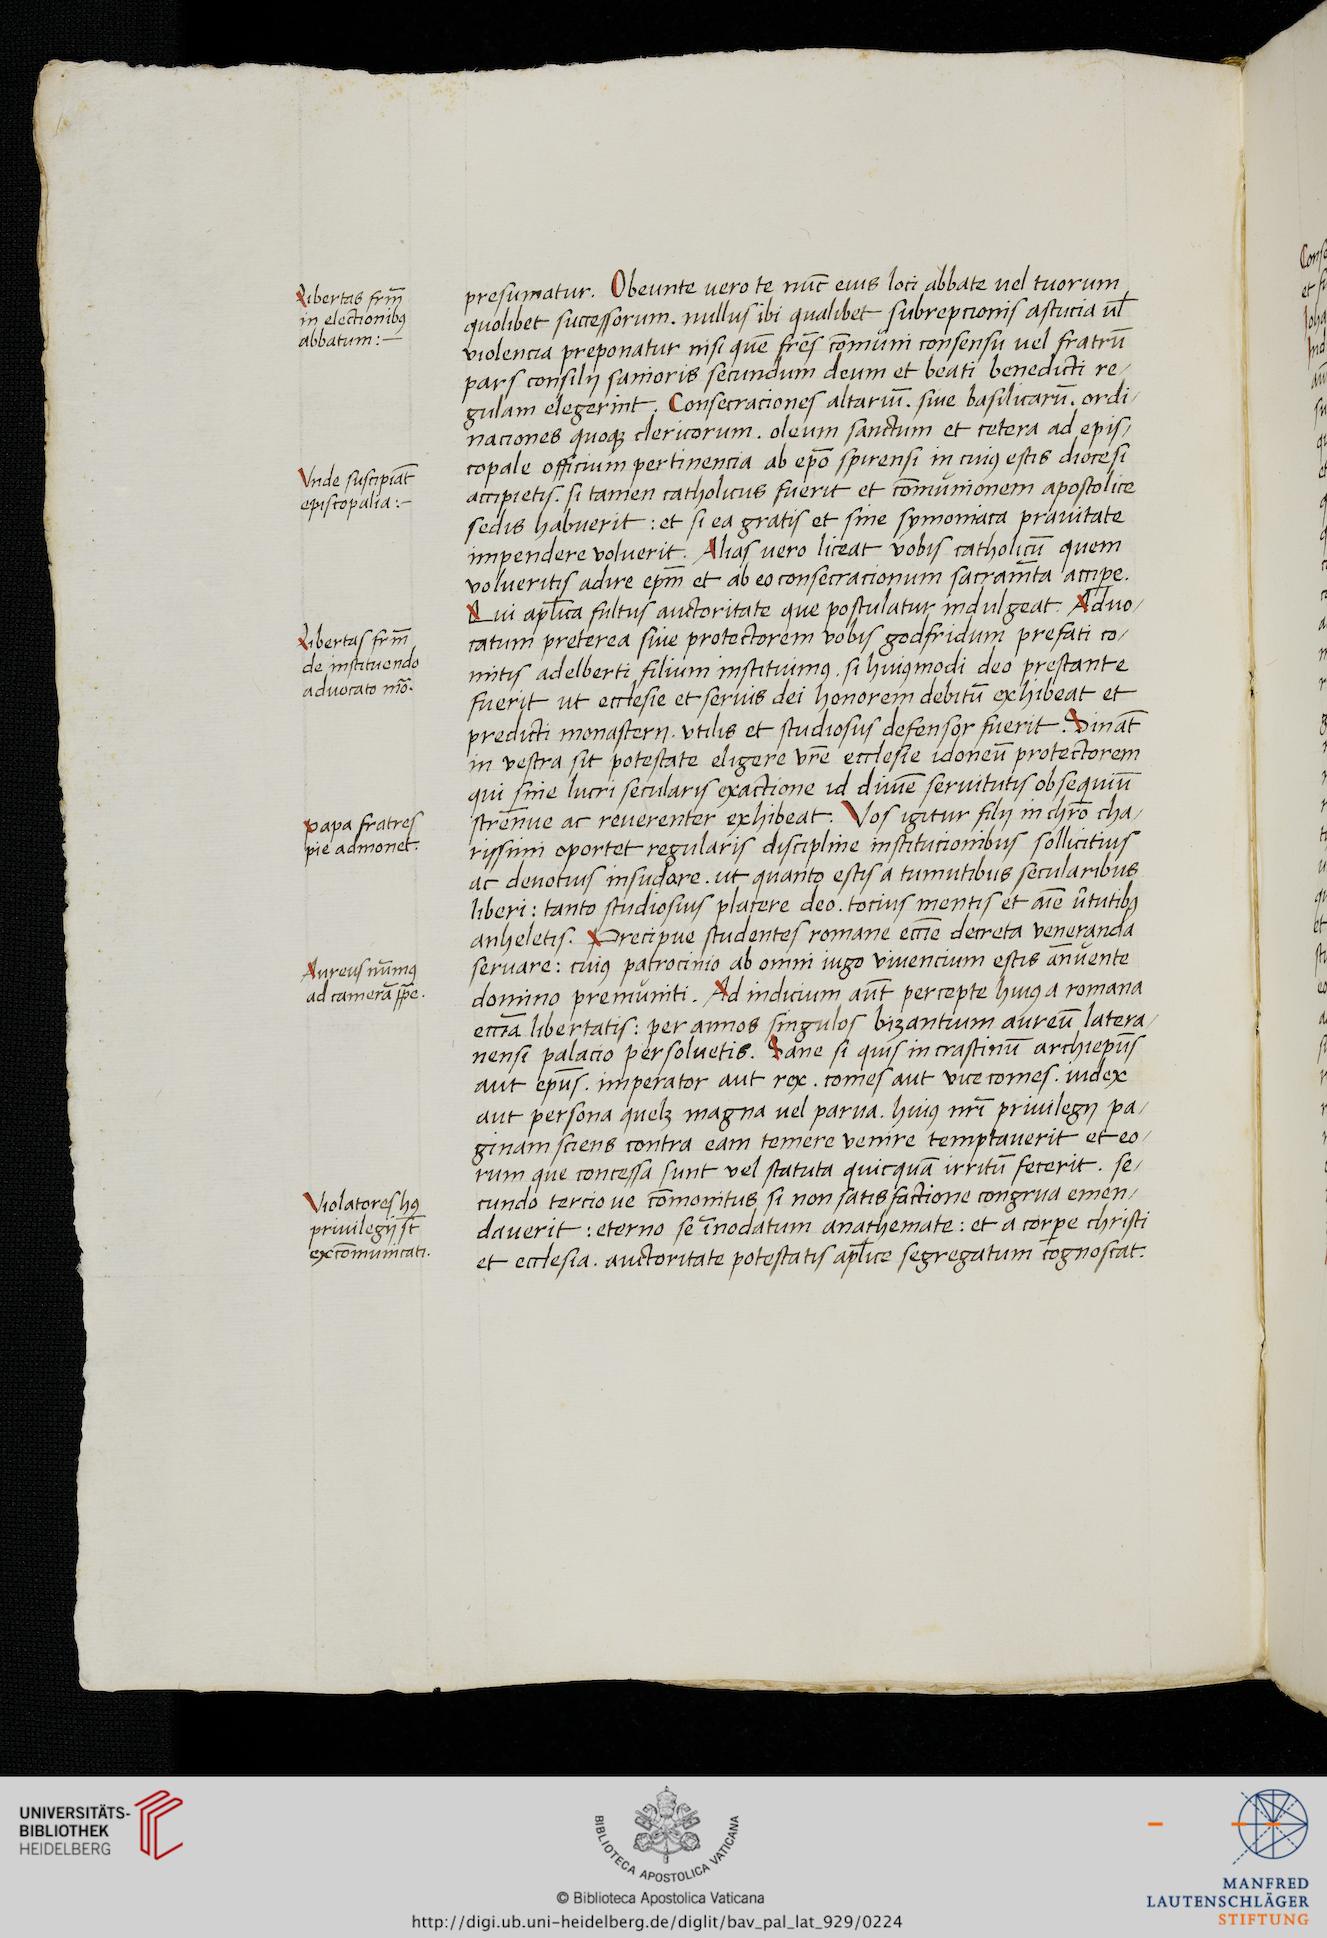 Libertas frm̄
in electionibꝰ
abbatum :—
Vnde suscipiāt
episcopalia :—
Libertas frm̄
de instituendo
aduocato mō.
Papa fratres
pie admonet.
Aureus nūmꝰ
ad camerā ppe.
Violatores hꝰ
priuilegij st̄
excōmunicati.
presumatur. Obeunte uero te nūc eius loci abbate uel tuorum
quolibet successorum. nullus ibi qualibet subrepcionis astucia ul̄
violencia preponatur nisi quē frēs cōmuni consensu uel fratrū
pars consilij sanioris secundum deum et beati benedicti re/
gulam elegerint. Consecraciones altariū. siue basilicarū. ordi/
naciones quoqꝫ clericorum. oleum sanctum et cetera ad epis/
copale officium pertinencia ab epō spirensi in cuiꝰ estis diocesi
accipietis. si tamen catholicus fuerit et cōmunionem apostolice
sedis habuerit : et si ea gratis et sine symoniaca prauitate
impendere voluerit. Alias uero liceat vobis catholicū quem
volueritis adire epm̄ et ab eo consecracionum sacram̄ta accipe.
Qui apl̄ica fultus auctoritate que postulatur indulgeat. Aduo/
catum preterea siue protectorem vobis godfridum prefati co/
mitis adelberti filium instituimꝰ. si huiꝰmodi deo prestante
fuerit ut ecclesie et seruis dei honorem debitū exhibeat et
predicti monasterij. vtilis et studiosus defensor fuerit. Sin aūt
in vestra sit potestate eligere vr̄e ecclesie idoneū protectorem
qui sine lucri secularis exactione id diuīe seruitutis obsequiū
strennue ac reuerenter exhibeat. Vos igitur filij in chrō cha/
rissimi oportet regularis discipline institucionibus sollicitius
ac deuotius insudare. ut quanto estis a tumutibus secularibus
liberi : tanto studiosius placere deo. tocius mentis et aīe v̄tutibꝰ
anheletis. Precipue studentes romane eccīe decreta veneranda
seruare : cuiꝰ patrocinio ab omni iugo viuencium estis annuente
domino premuniti. Ad indicium aūt percepte huiꝰ a romana
eccīa libertatis : per annos singulos bizantium aureū latera/
nensi palacio persoluetis. Sane si quis in crastinū archiepūs
aut epūs. imperator aut rex. comes aut vice comes. iudex
aut persona quelꝫ magna uel parua. huiꝰ nrī priuilegij pa/
ginam sciens contra eam temere venire temptauerit et eo/
rum que concessa sunt vel statuta quicquā irritū fecerit. se/
cundo tercio ue cōmonitus si non satisfactione congrua emen/
dauerit : eterno se īnodatum anathemate : et a corpe christi
et ecclesia. auctoritate potestatis apl̄ice segregatum cognoscat.
UNIVERSITÄTS-
BIBLIOTHEK
HEIDELBERG
BIBLIOTECA APOSTOLICA VATICANA
© Biblioteca Apostolica Vaticana
http://digi.ub.uni-heidelberg.de/diglit/bav_pal_lat_929/0224
MANFRED
LAUTENSCHLÄGER
STIFTUNG